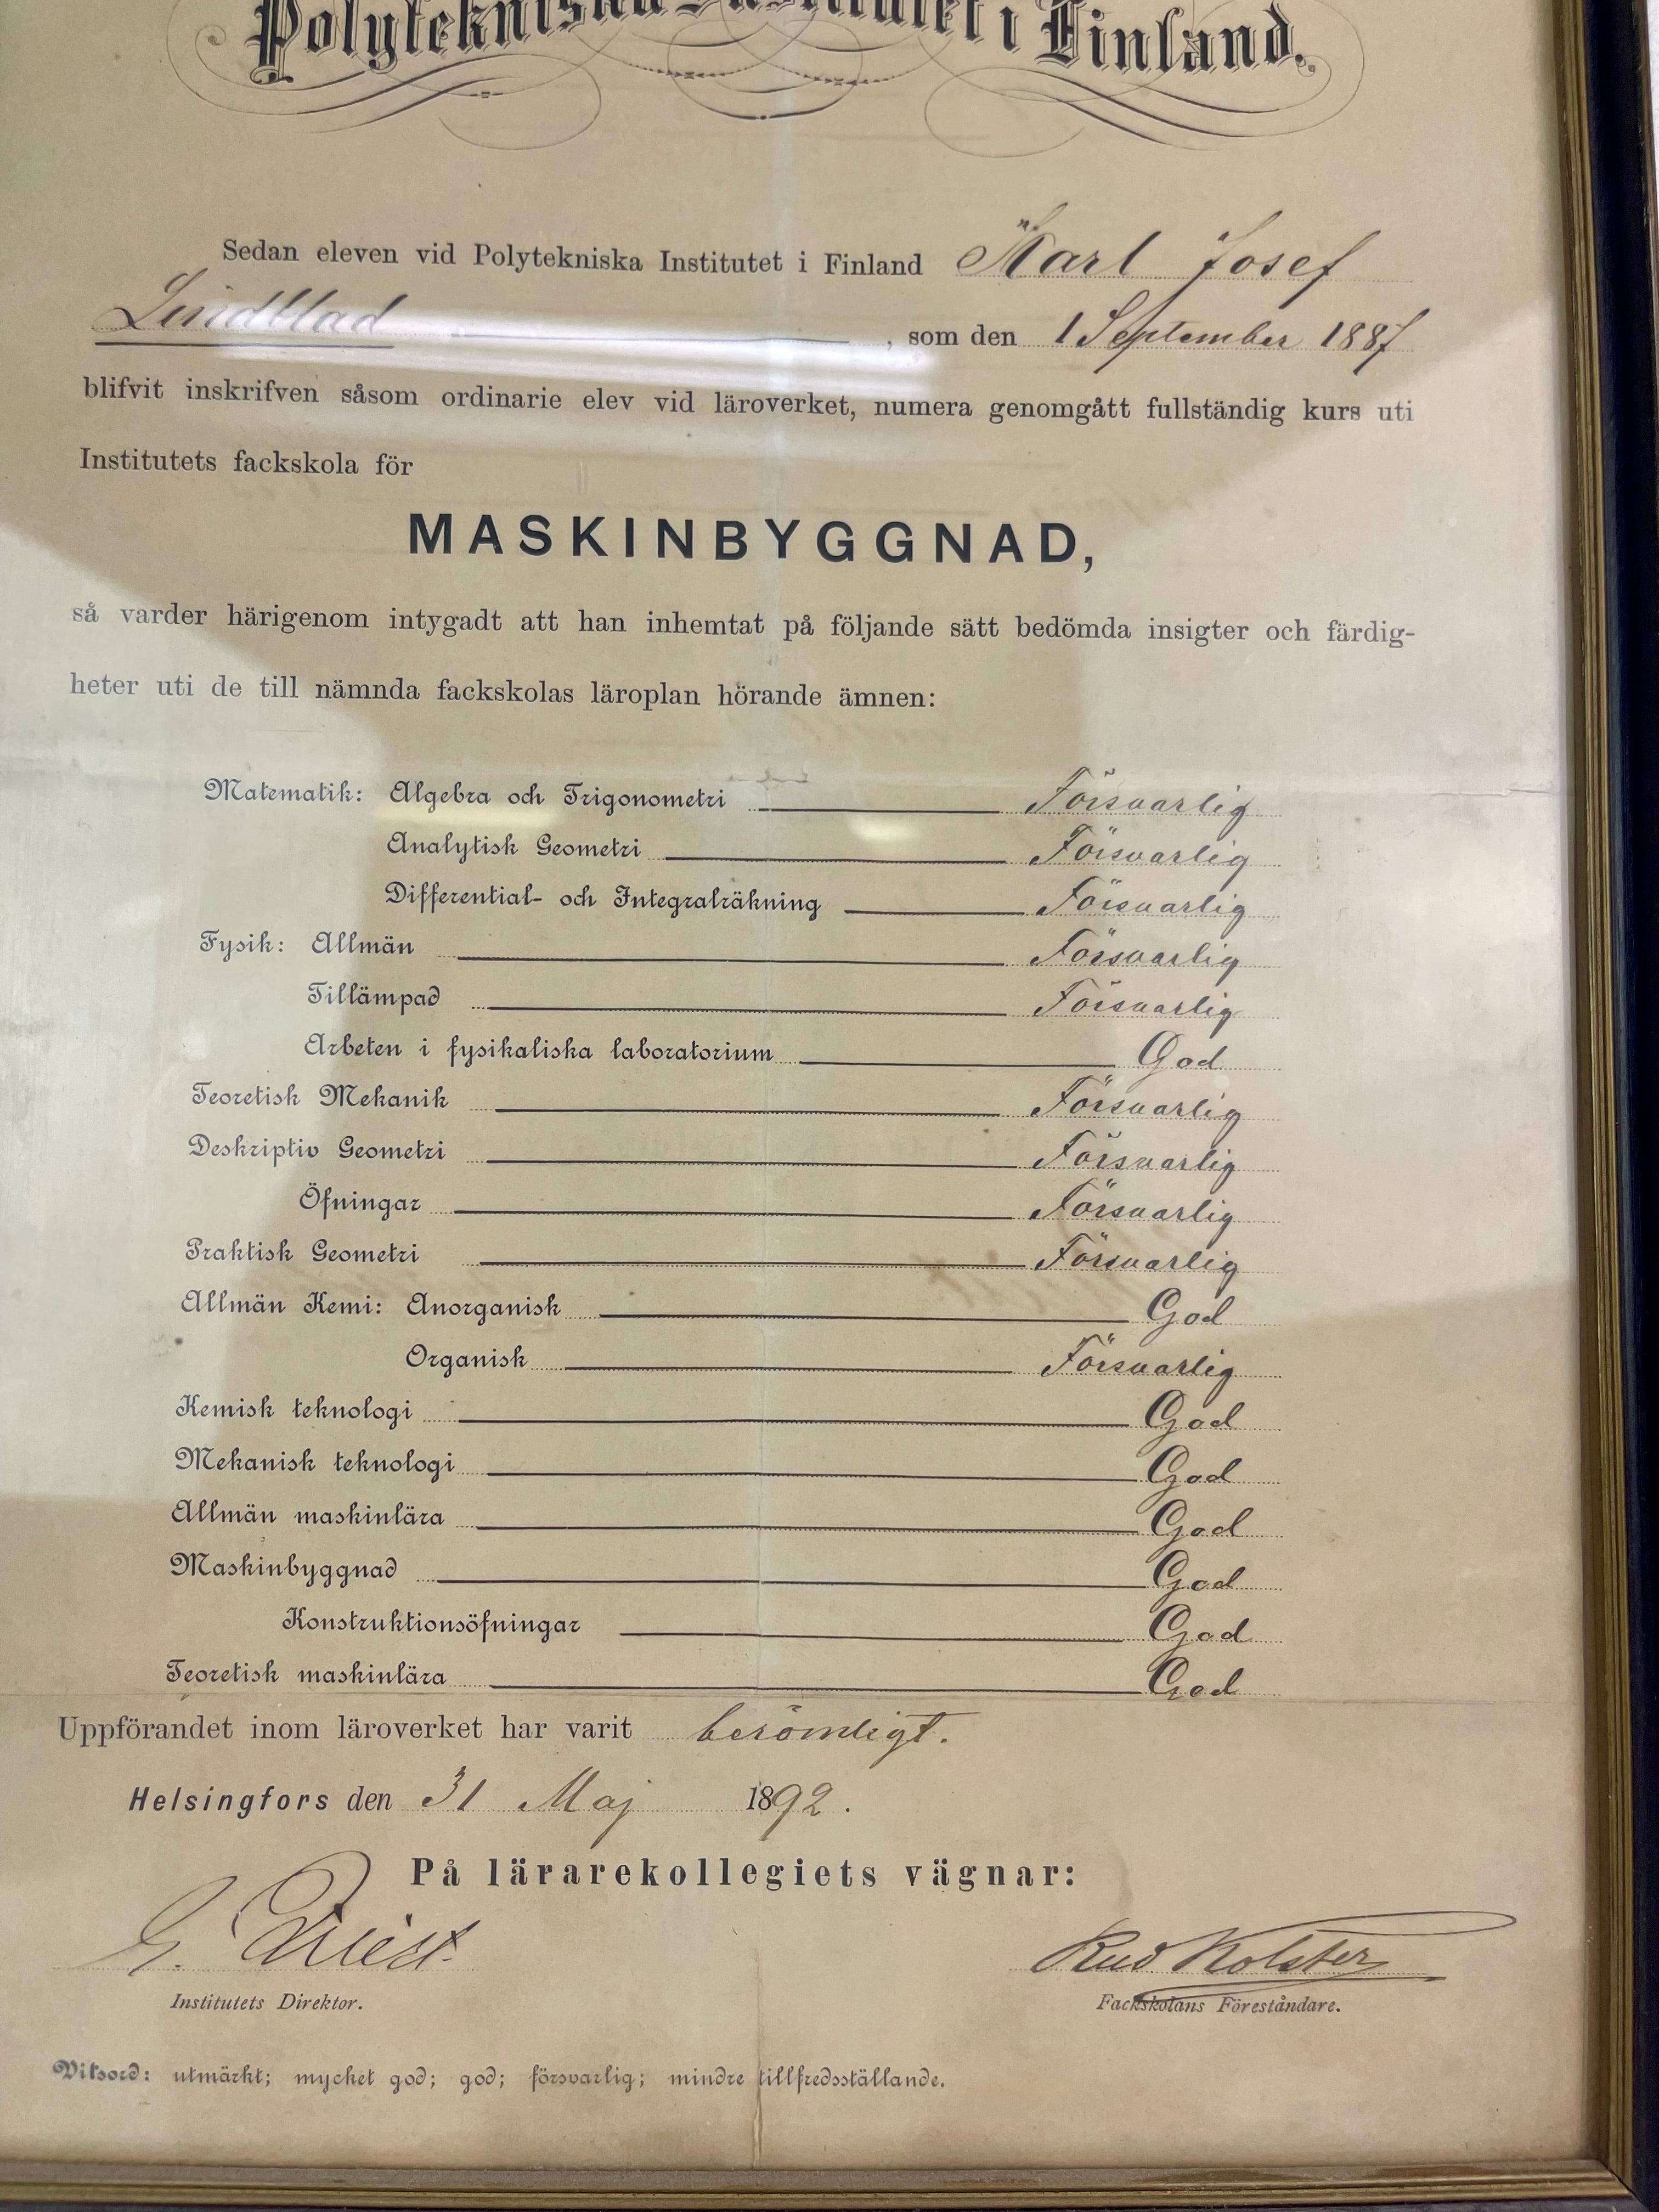 Polytekniska Institutet i Finland.
Sedan eleven vid Polytekniska Institutet i Finland Karl Josef
Lindblad, som den 1 September 1887
blifvit inskrifven såsom ordinarie elev vid läroverket, numera genomgått fullständig kurs uti
Institutets fackskola för
MASKINBYGGNAD,
så varder härigenom intygadt att han inhemtat på följande sätt bedömda insigter och färdig-
heter uti de till nämnda fackskolas läroplan hörande ämnen:
Matematik: Algebra och Trigonometri Försvarlig
Analytisk Geometri Försvarlig
Differential- och Integralräkning Försvarlig
Fysik: Allmän Försvarlig
Tillämpad Försvarlig
Arbeten i fysikaliska laboratorium God
Teoretisk Mekanik Försvarlig
Deskriptiv Geometri Försvarlig
Öfningar Försvarlig
Praktisk Geometri Försvarlig
Allmän Kemi: Anorganisk God
Organisk Försvarlig
Kemisk teknologi God
Mekanisk teknologi God
Allmän maskinlära God
Maskinbyggnad God
Konstruktionsöfningar God
Teoretisk maskinlära God
Uppförandet inom läroverket har varit berömligt.
Helsingfors den 31 Maj 1892.
På lärarekollegiets vägnar:
Rud Kolster
Institutets Direktor. Fackskolans Föreståndare.
Vitsord: utmärkt; mycket god; god; försvarlig; mindre tillfredsställande.